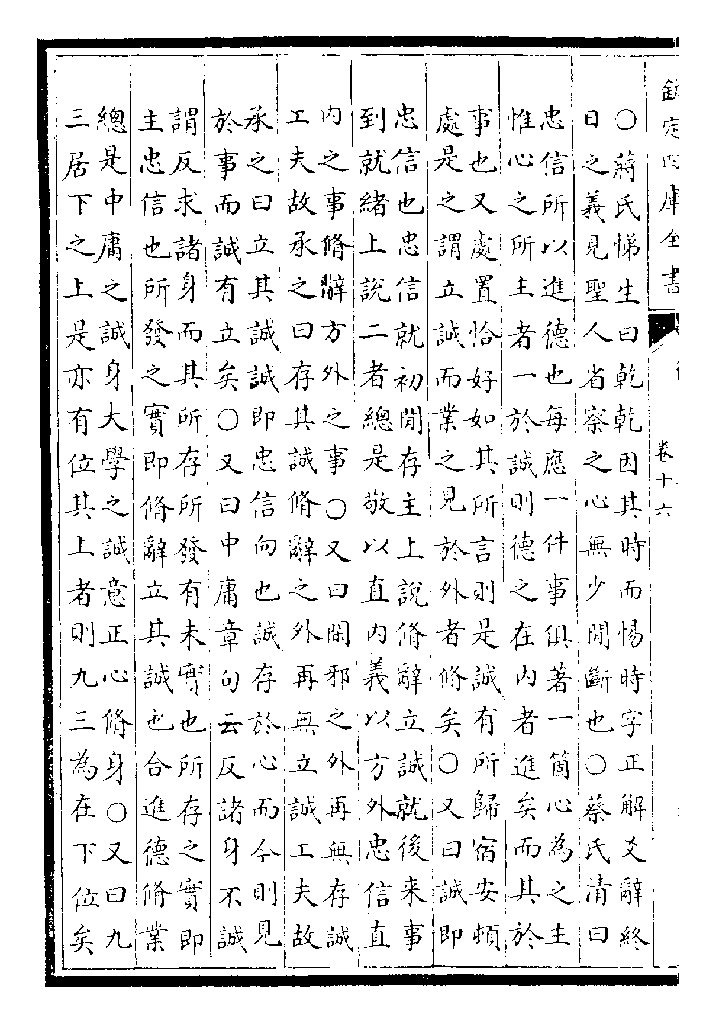 欽定四庫全書
卷十六
〇蔣氏悌生曰乾乾因其時而惕時字正解爻辭終
日之義見聖人省察之心無少閒斷也〇蔡氏清曰
忠信所以進德也每應一件事俱著一箇心為之主
惟心之所主者一於誠則德之在内者進矣而其於
事也又處置恰好如其所言則是誠有所歸宿安頓
處是之謂立誠而業之見於外者脩矣〇又曰誠即
忠信也忠信就初閒存主上說脩辭立誠就後来事
到就緒上說二者總是敬以直内義以方外忠信直
内之事脩辭方外之事〇又曰閑邪之外再無存誠
工夫故承之曰存其誠脩辭之外再無立誠工夫故
承之曰立其誠誠即忠信向也誠存於心而今則見
於事而誠有立矣〇又曰中庸章句云反諸身不誠
謂反求諸身而其所存所發有未實也所存之實即
主忠信也所發之實即脩辭立其誠也合進德脩業
總是中庸之誠身大學之誠意正心脩身〇又曰九
三居下之上是亦有位其上者則九三為在下位矣